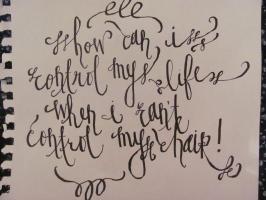 how can i
control my life
when i can't
control my hair!